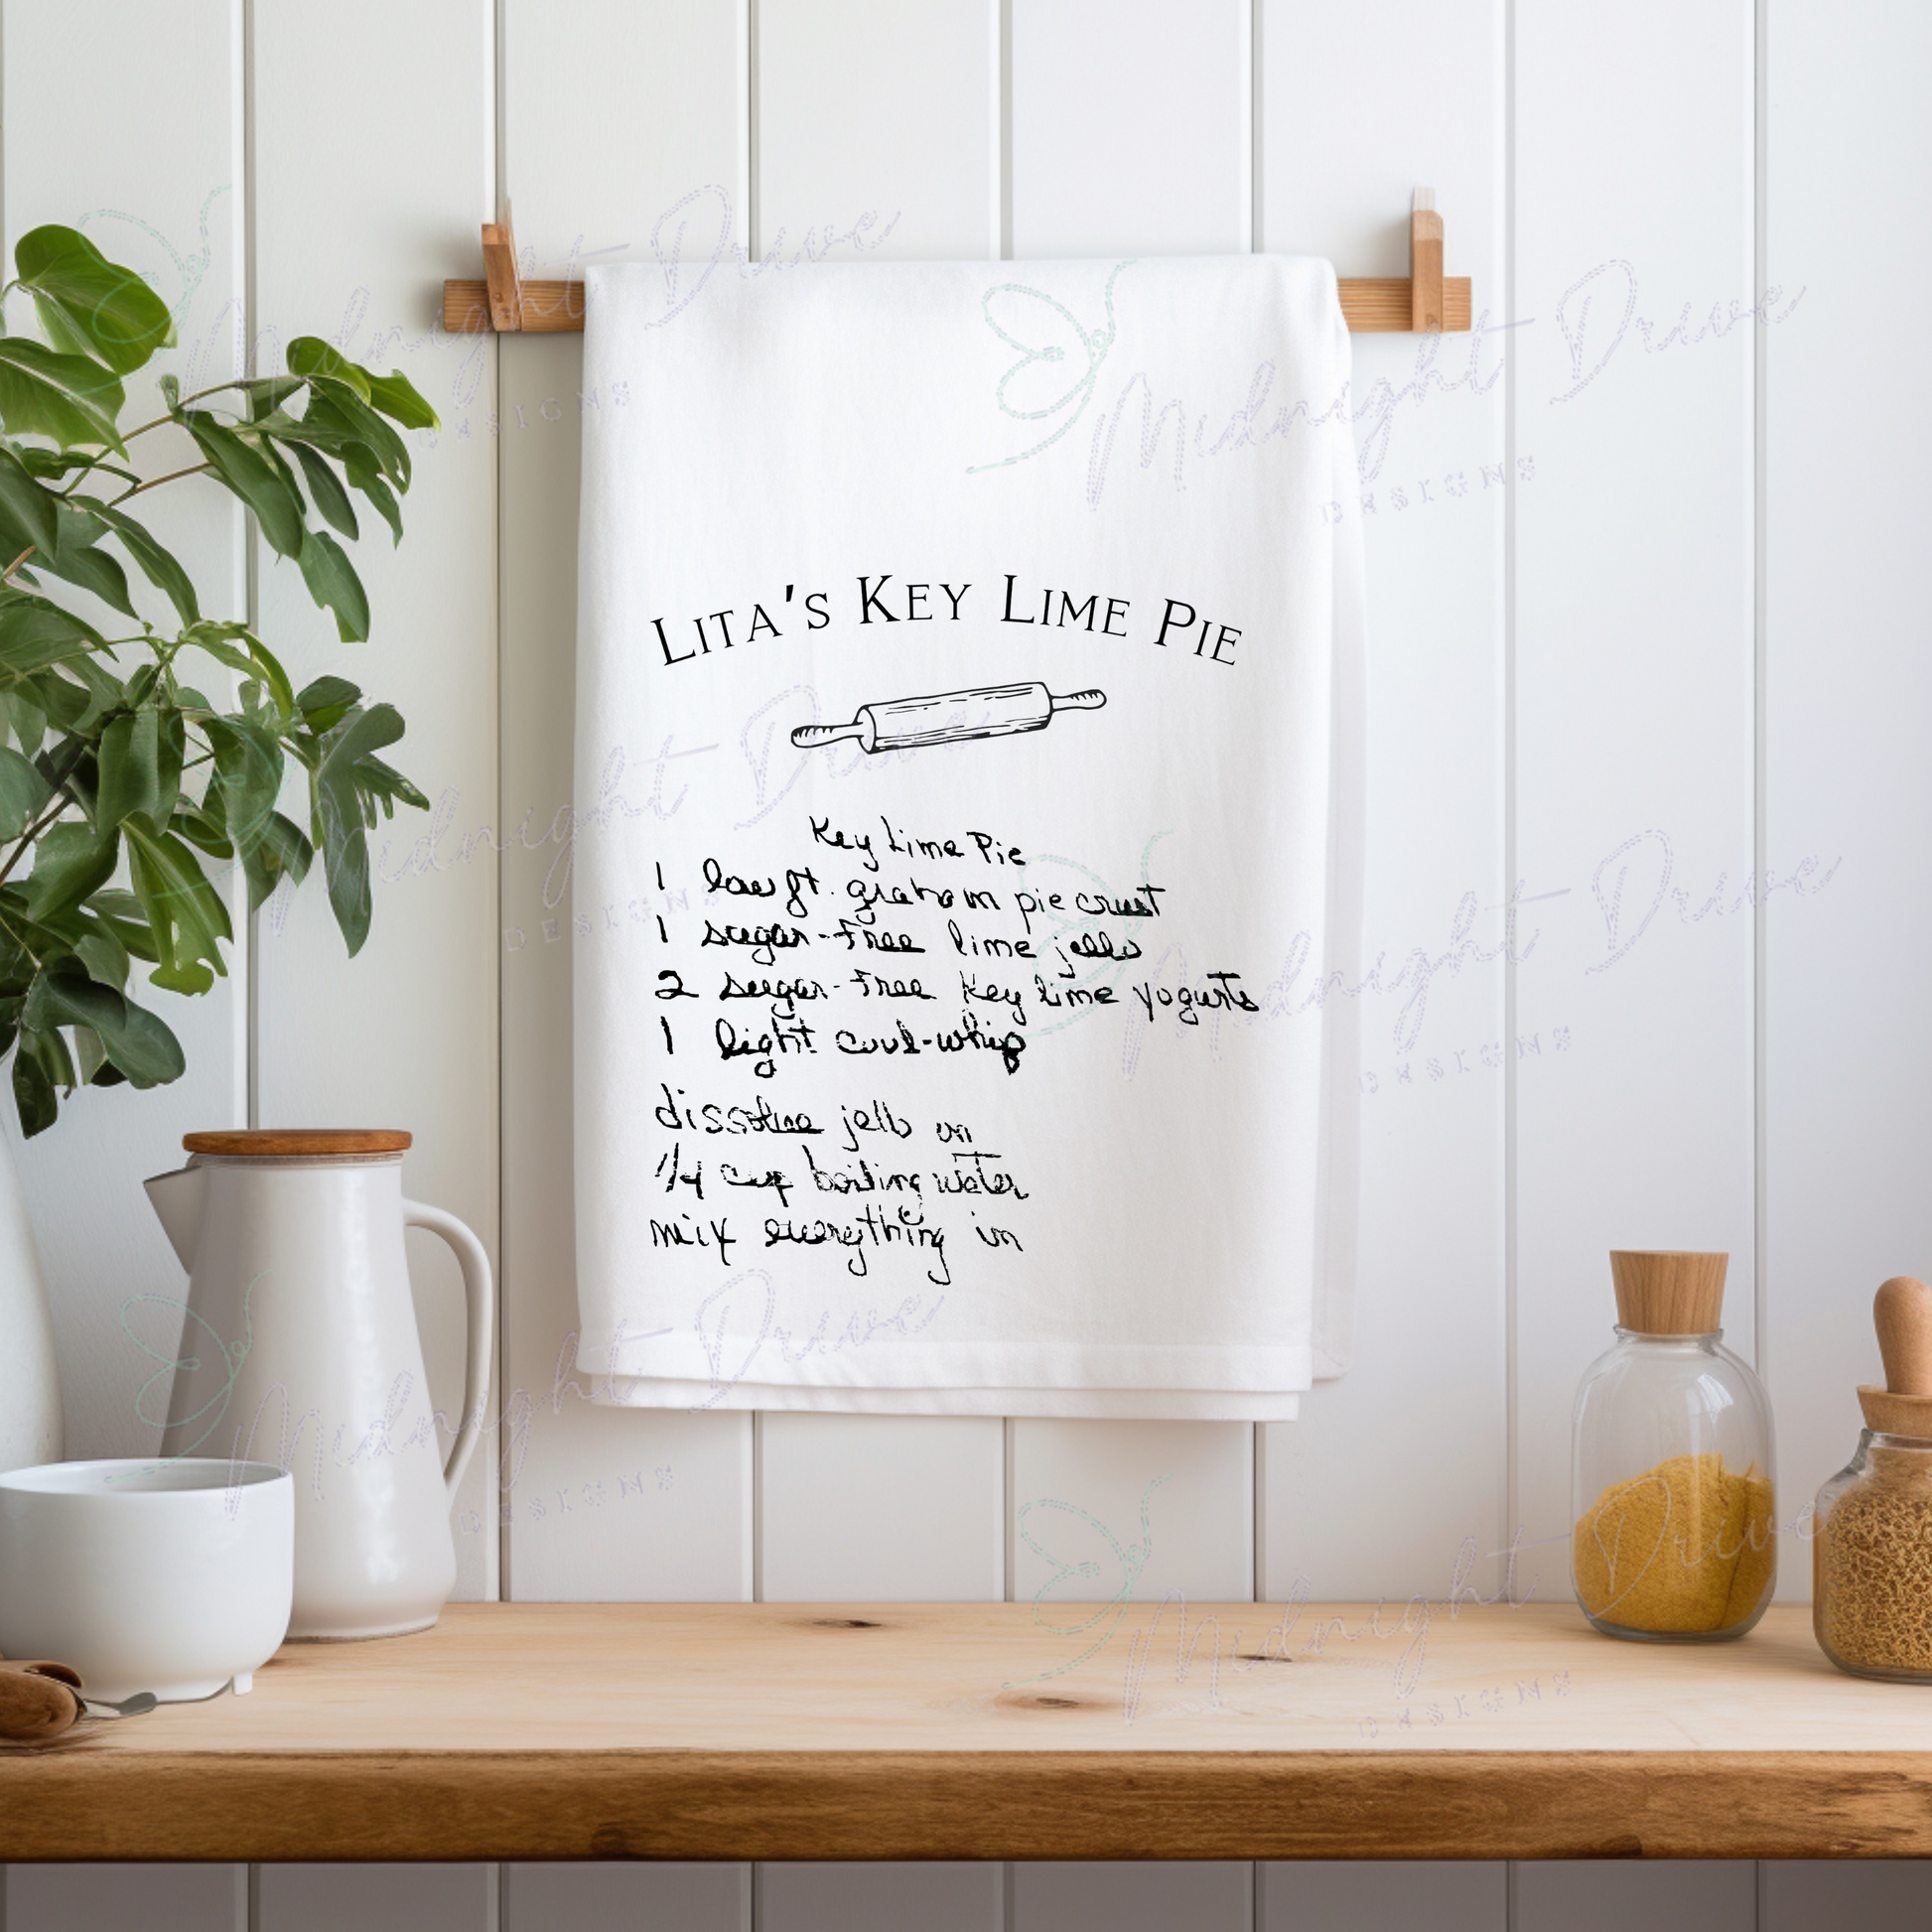 LITA'S KEY LIME PIE
Key Lime Pie
1 low ft. graham pie crust
1 sugar-free lime jello
2 sugar-free Key lime yogurts
1 light cool-whip
dissolve jello in
1/4 cup boiling water
mix everything in
Midnight Drive
DESIGNS
Midnight Drive
DESIGNS
Midnight Drive
DESIGNS
Midnight Drive
DESIGNS
Midnight Drive
DESIGNS
Midnight Drive
DESIGNS